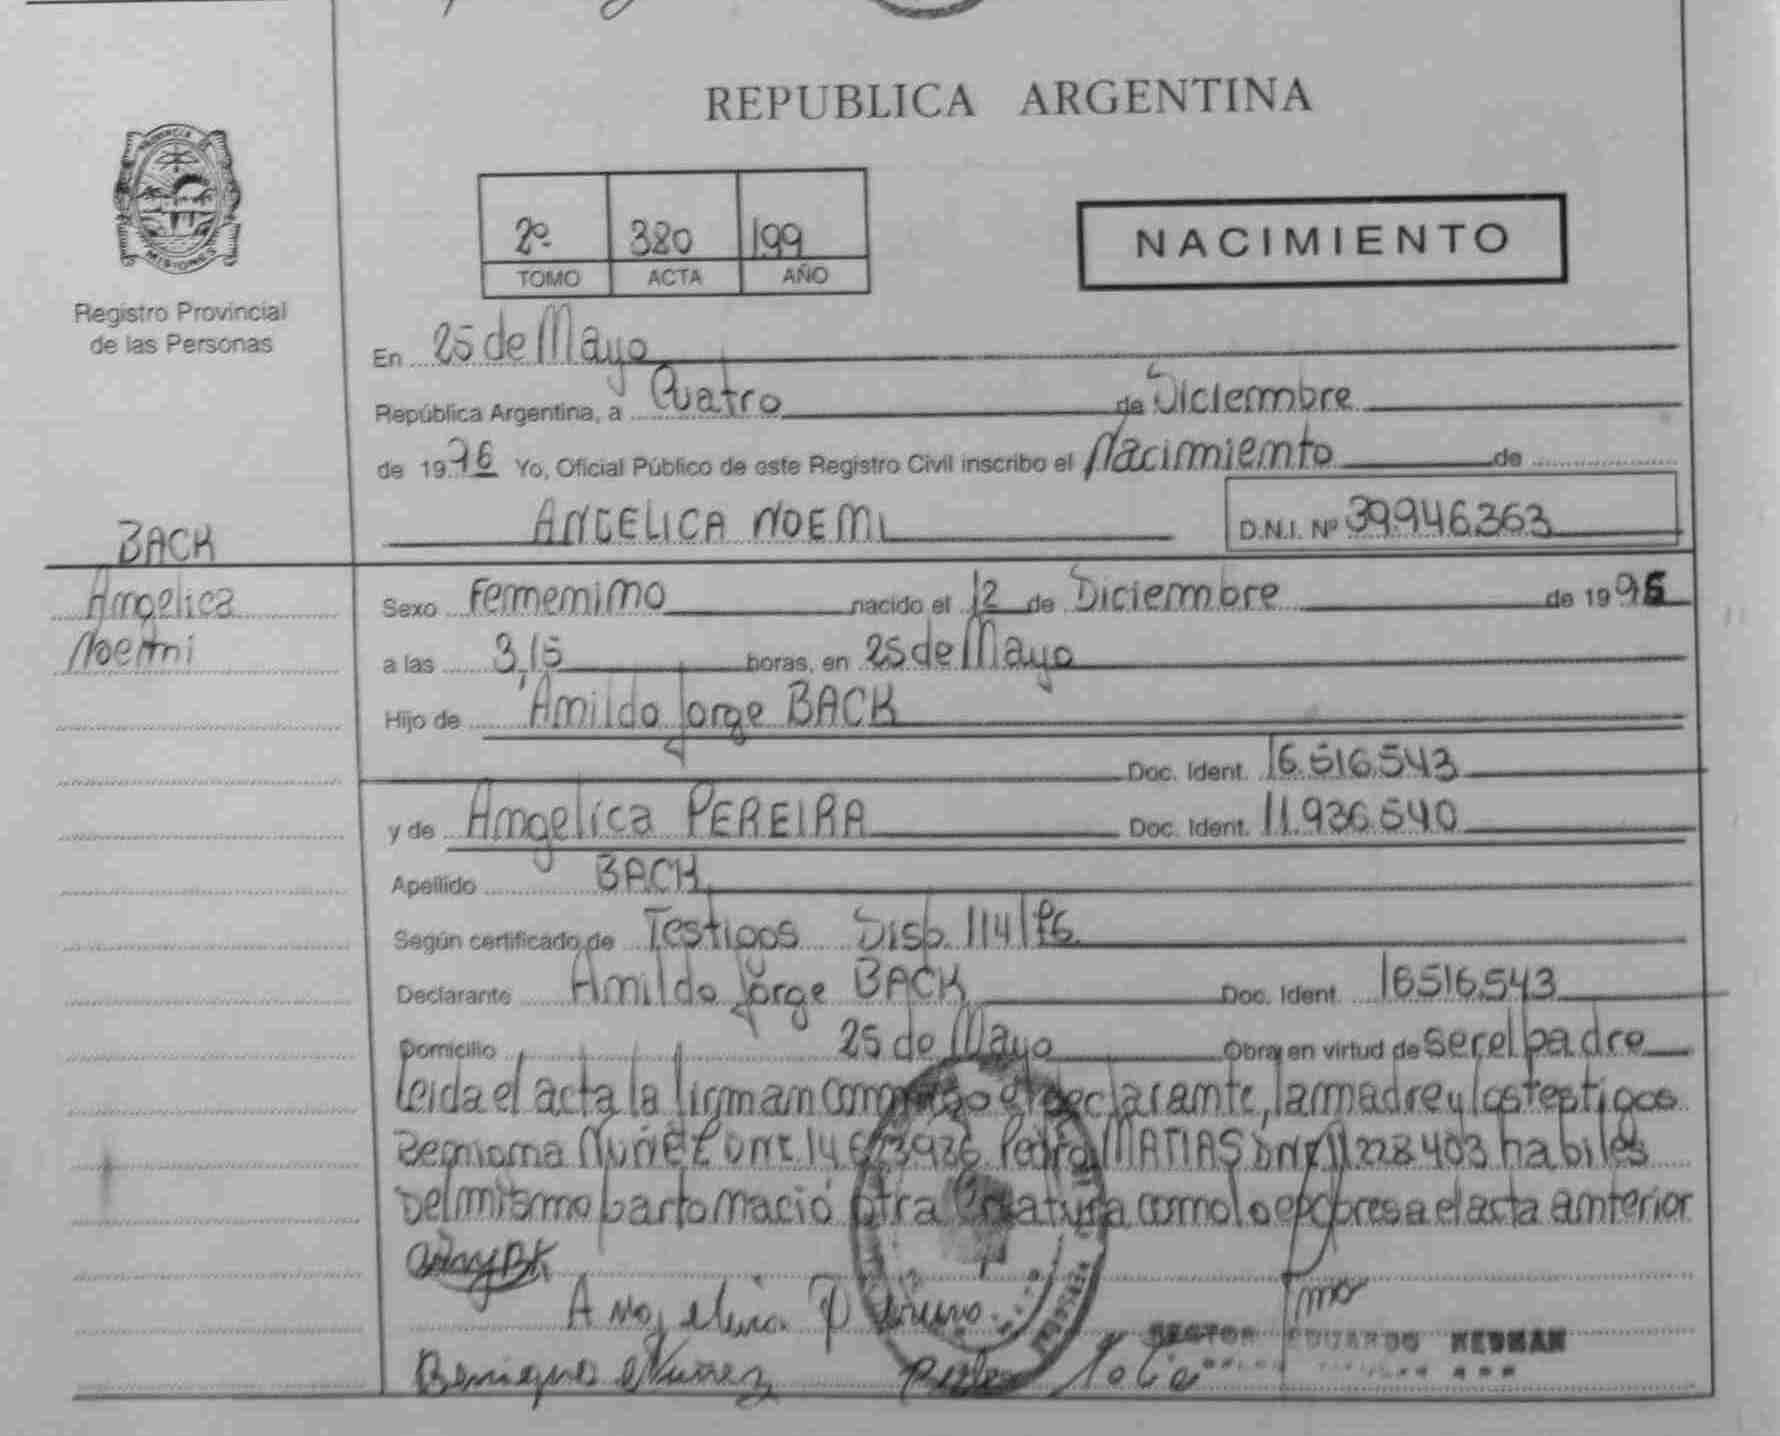 REPUBLICA ARGENTINA
PROVINCIA DE
MISIONES
Registro Provincial
de las Personas
2º 380 199
TOMO ACTA AÑO
NACIMIENTO
En 25 de Mayo
República Argentina, a Cuatro de Diciembre
de 1996 Yo, Oficial Público de este Registro Civil inscribo el Nacimiento de
ANGELICA NOEMI D.N.I. Nº 39.946.363
BACK
Angelica
Noemi
Sexo Femenino nacido el 12 de Diciembre de 1996
a las 3,15 horas, en 25 de Mayo
Hijo de Amildo Jorge BACK
Doc. Ident. 16.516.543
y de Angelica PEREIRA Doc. Ident. 11.936.540
Apellido BACK
Según certificado de Testigos Disp. 114/96
Declarante Amildo Jorge BACK Doc. Ident. 16.516.543
Domicilio 25 de Mayo Obra en virtud de ser el padre
leida el acta la firman conmigo el declarante, la madre y los testigos
NUÑEZ DNI Pedro MATIAS DNI 11228403 habiles
Del mismo parto nació otra criatura como lo expresa el acta anterior
HECTOR EDUARDO